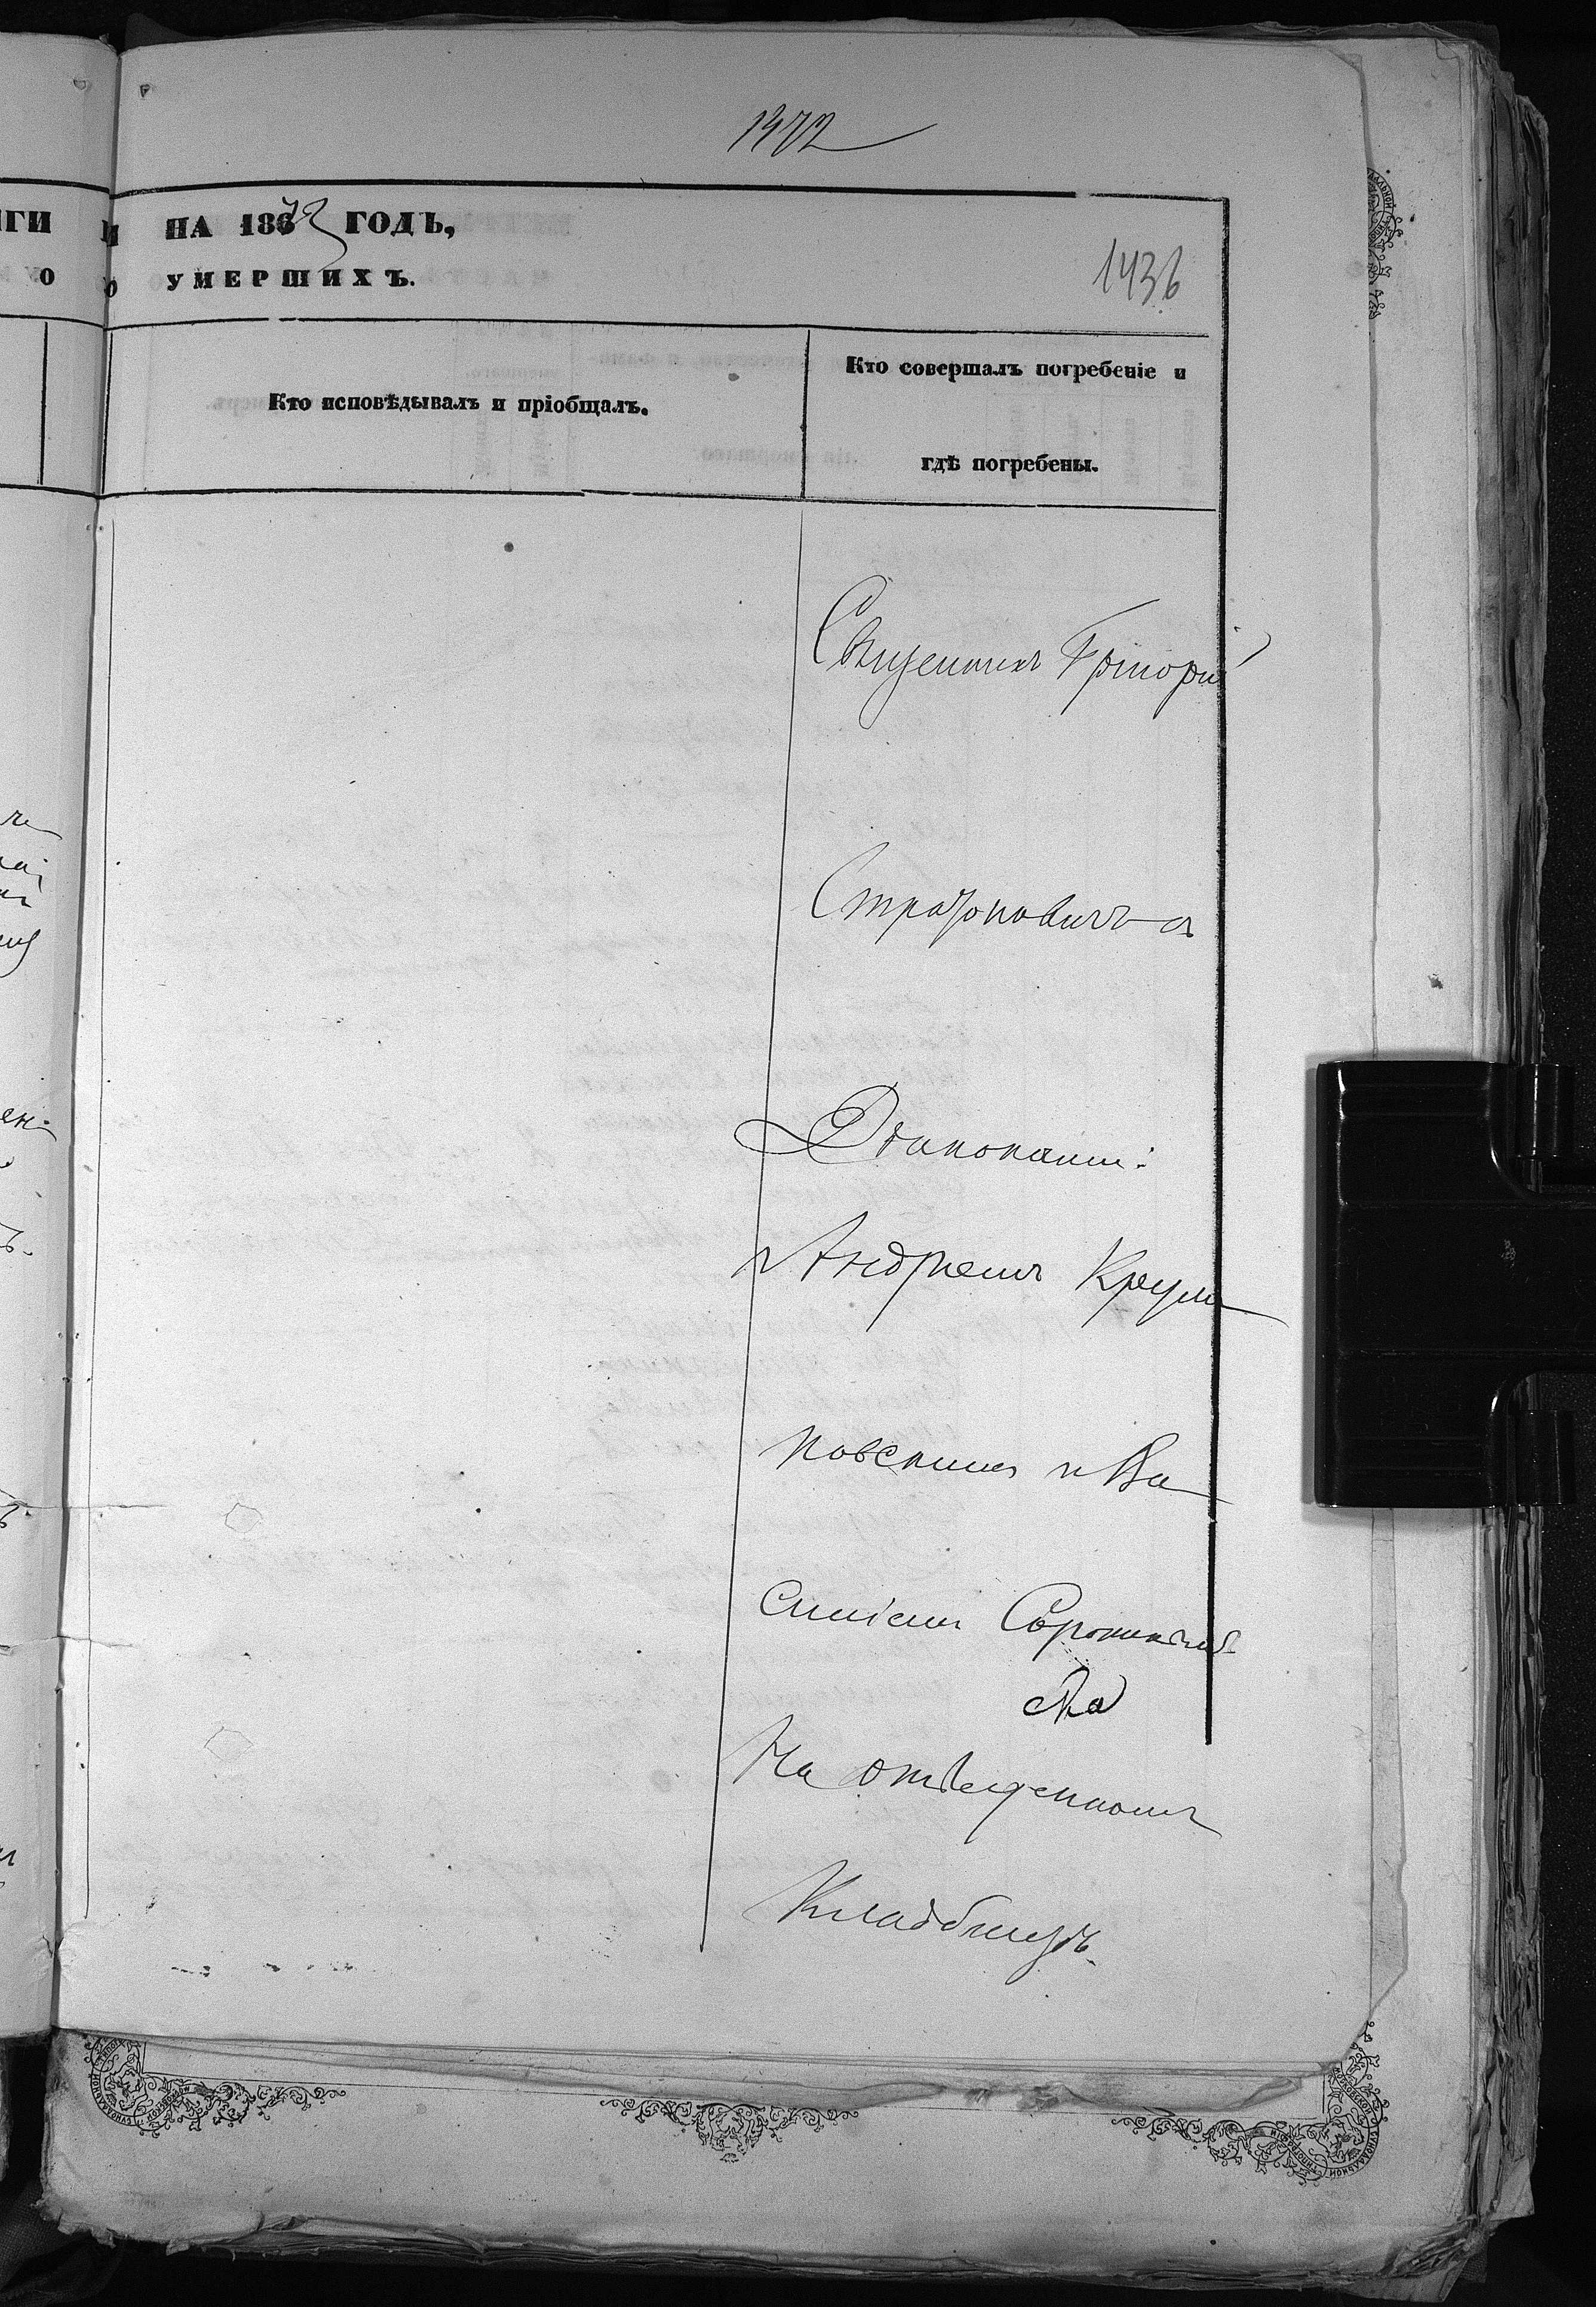 1372
НА 1872 ГОДЪ,
1436
УМЕРШИХЪ.
Кто исповѣдывалъ и пріобщалъ.
Кто совершалъ погребеніе и
гдѣ погребены.
Священникъ Григорій
Стратоновичъ съ
Діаконами:
Андреемъ Круши
новскимъ и Ва
силіемъ Сорочинскимъ
На отведенномъ
Кладбищѣ.